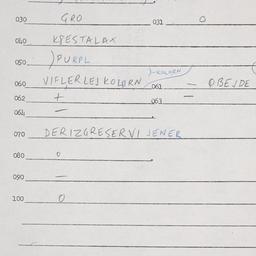 030 GRO 031 0
040 KPESTALAX
050 ) PURPL
060 VIFLERLEJKOLORN 061 - OBEJDE
062 + 063 =
064 -
070 DERIZGRESERVI JENER
080 0
090 -
100 0